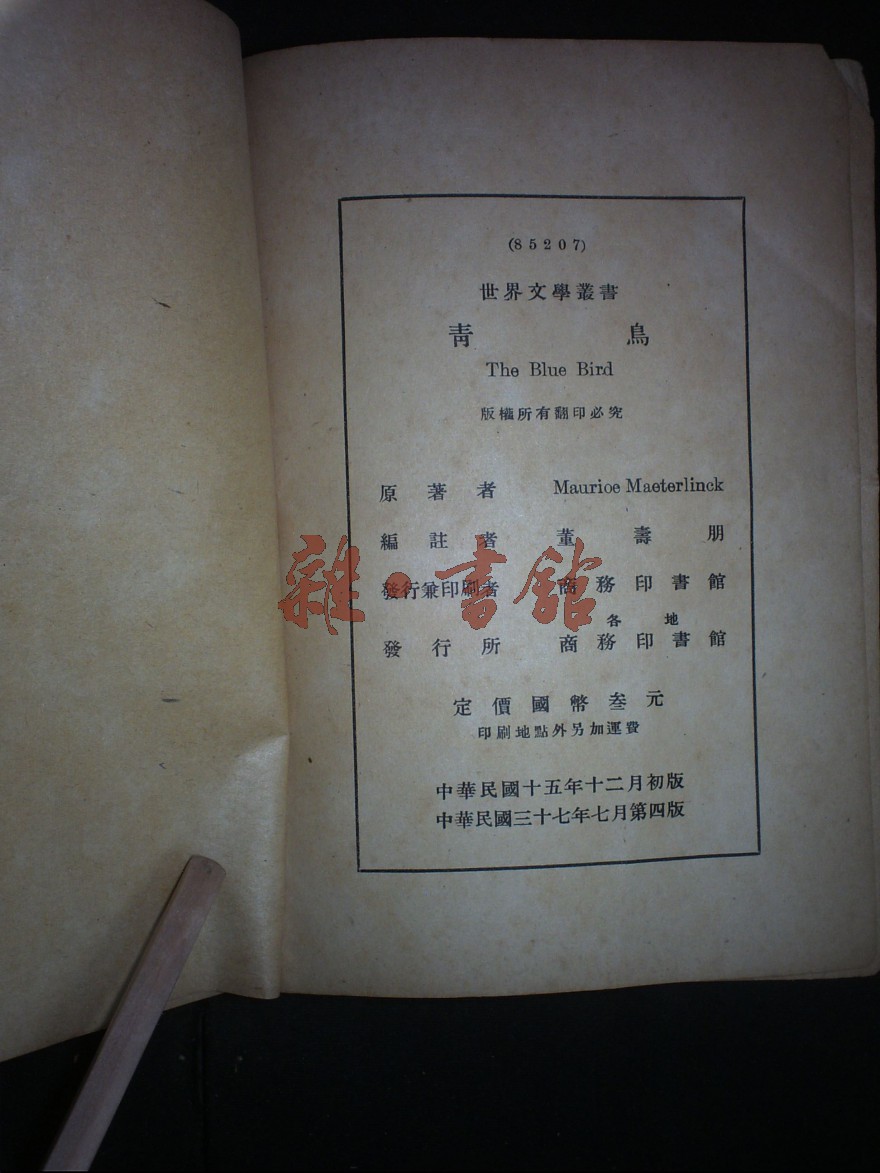 (85207)
世界文學叢書
青鳥
The Blue Bird
版權所有翻印必究
原著者 Maurice Maeterlinck
編註者 董壽朋
發行兼印刷者 商務印書館
各地
發行所 商務印書館
定價國幣叁元
印刷地點外另加運費
中華民國十五年十二月初版
中華民國三十七年七月第四版
雜·書館